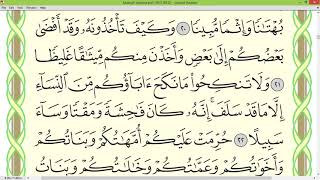 بُهْتَٰنًا وَإِثْمًا مُّبِينًا ٢٠ وَكَيْفَ تَأْخُذُونَهُۥ وَقَدْ أَفْضَىٰ
بَعْضُكُمْ إِلَىٰ بَعْضٍ وَأَخَذْنَ مِنكُم مِّيثَٰقًا غَلِيظًا
٢١ وَلَا تَنكِحُوا۟ مَا نَكَحَ ءَابَآؤُكُم مِّنَ ٱلنِّسَآءِ
إِلَّا مَا قَدْ سَلَفَ ۚ إِنَّهُۥ كَانَ فَٰحِشَةً وَمَقْتًا وَسَآءَ
سَبِيلًا ٢٢ حُرِّمَتْ عَلَيْكُمْ أُمَّهَٰتُكُمْ وَبَنَاتُكُمْ
وَأَخَوَٰتُكُمْ وَعَمَّٰتُكُمْ وَخَٰلَٰتُكُمْ وَبَنَاتُ